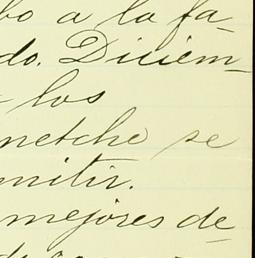 bo a la fa-
do. Diciem-
los
netche se
mitir.
mejores de-